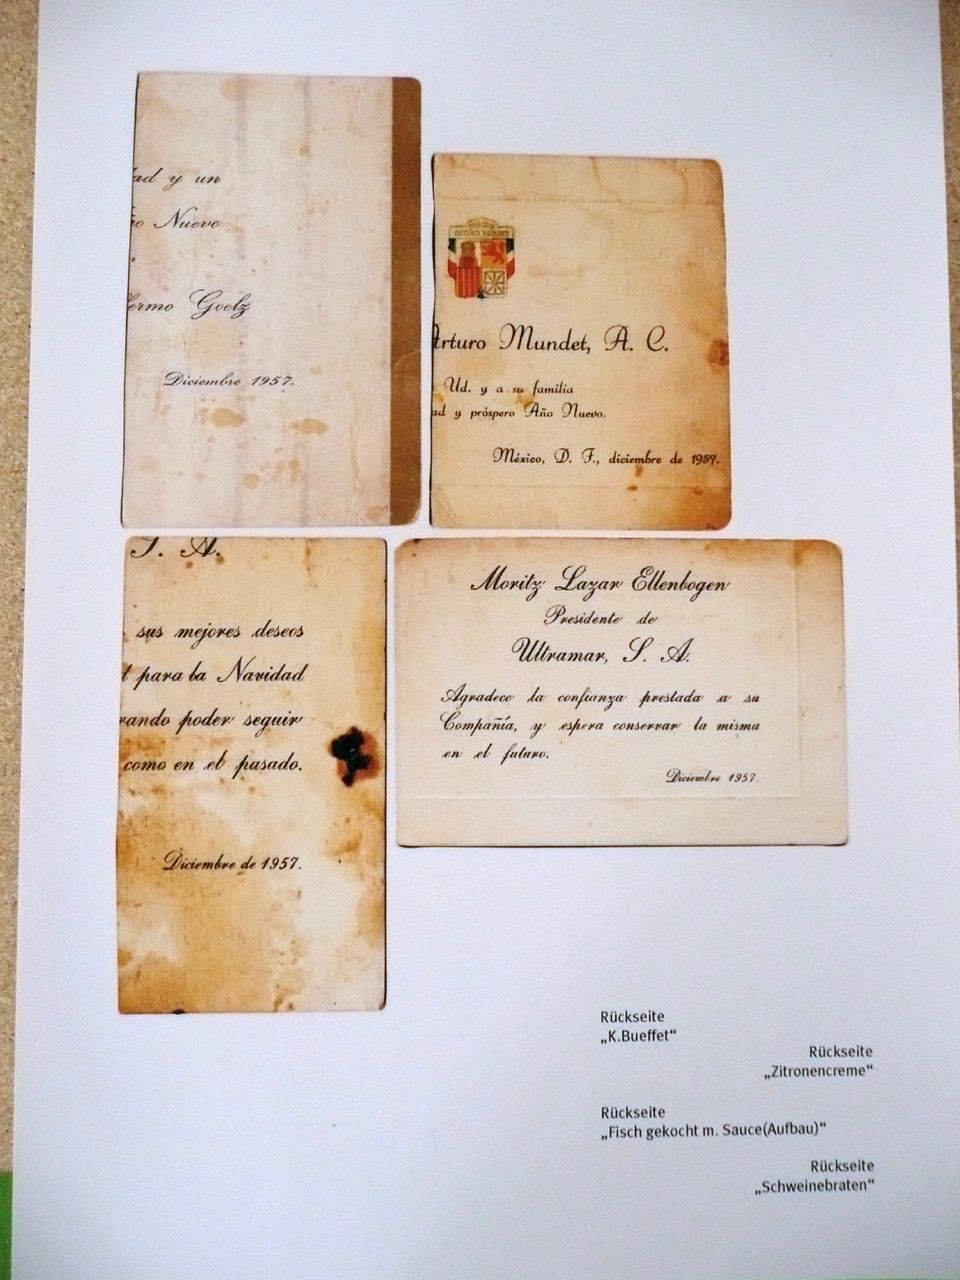 y un
Nuevo
Goelz
Diciembre 1957.
ARTURO MUNDET
Arturo Mundet, A. C.
Ud. y a su familia
y próspero Año Nuevo.
México, D. F., diciembre de 1957.
S. A.
sus mejores deseos
para la Navidad
poder seguir
como en el pasado.
Diciembre de 1957.
Moritz Lazar Ellenbogen
Presidente de
Ultramar, S. A.
Agradece la confianza prestada a su
Compañía, y espera conservar la misma
en el futuro.
Diciembre 1957.
Rückseite
„K.Bueffet“
Rückseite
„Zitronencreme“
Rückseite
„Fisch gekocht m. Sauce(Aufbau)“
Rückseite
„Schweinebraten“